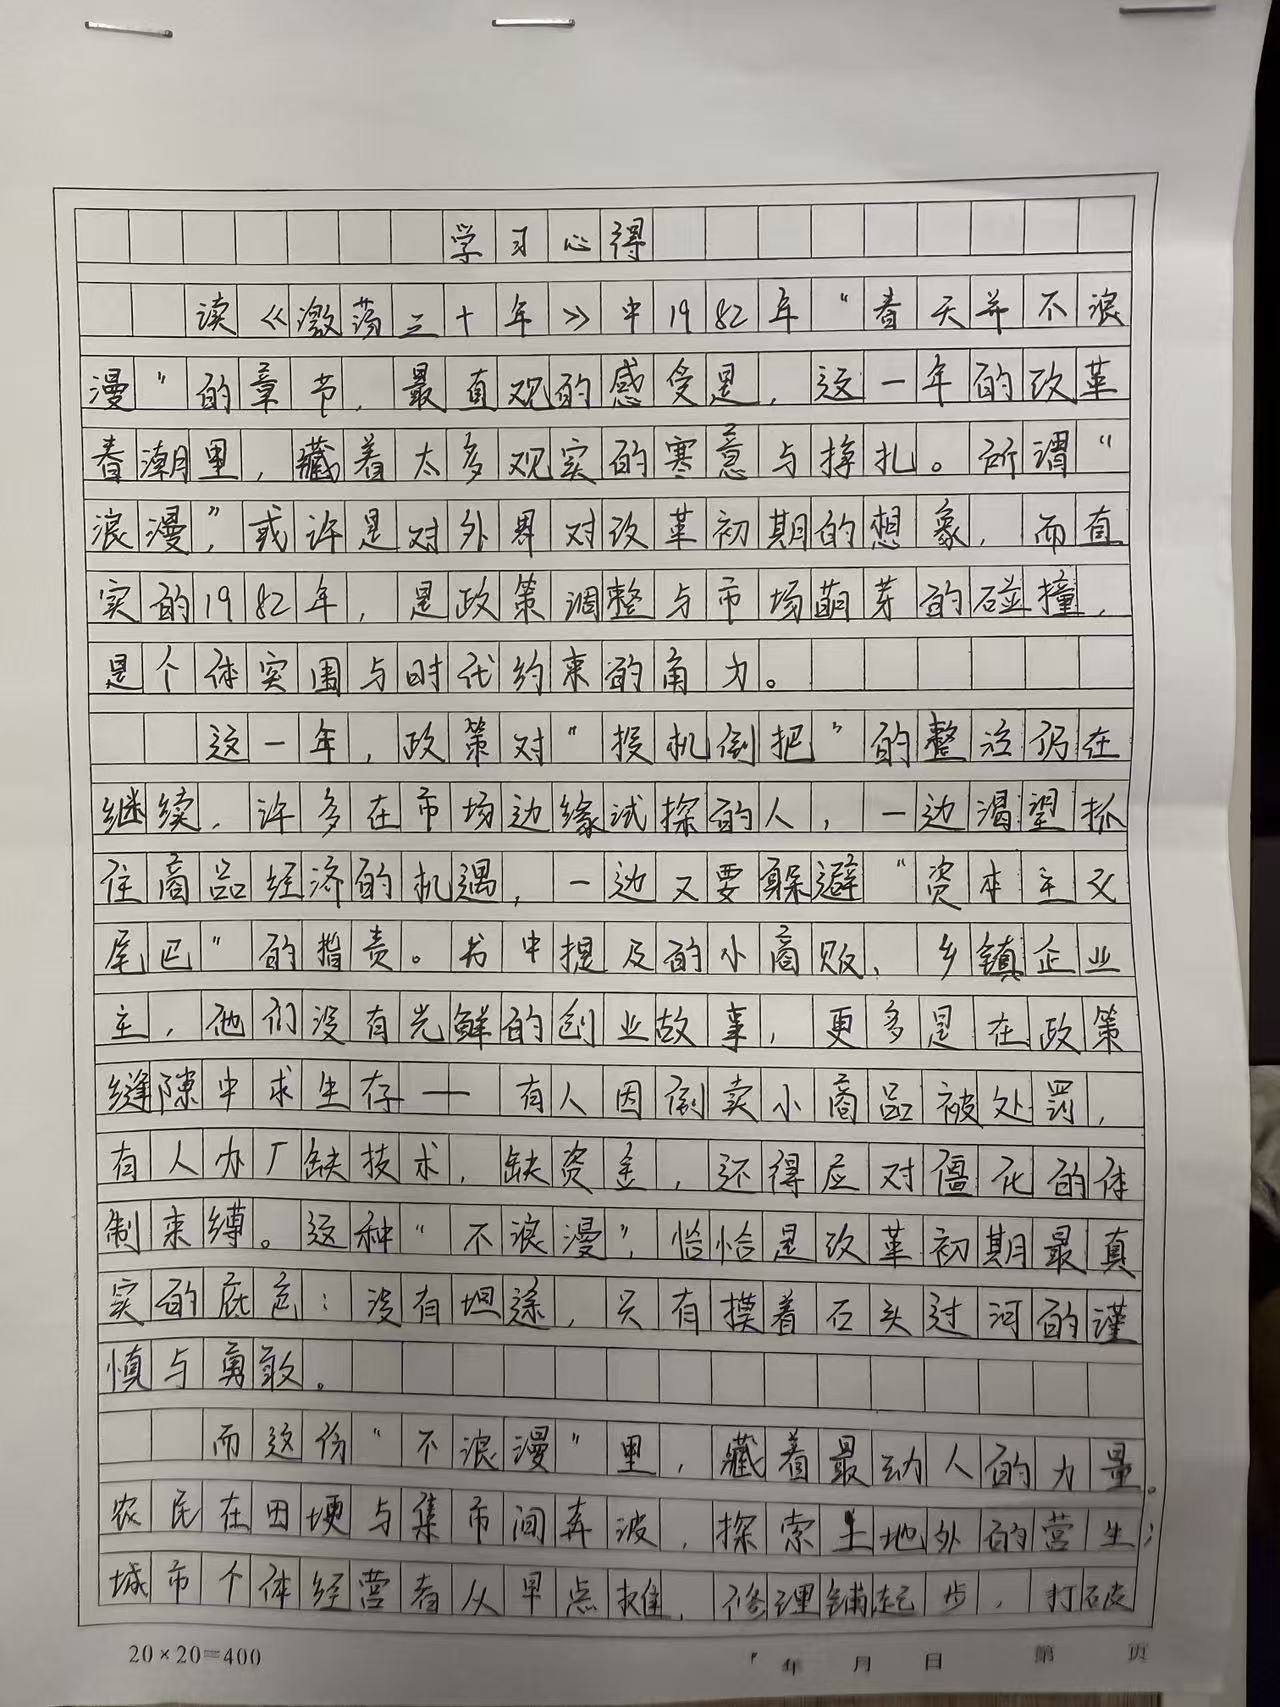 学习心得
读《激荡三十年》中1982年“春天并不浪
漫”的章节，最直观的感受是，这一年的改革
春潮里，藏着太多现实的寒意与挣扎。所谓“
浪漫”，或许是对外界对改革初期的想象，而真
实的1982年，是政策调整与市场萌芽的碰撞，
是个体突围与时代约束的角力。
这一年，政策对“投机倒把”的整治仍在
继续，许多在市场边缘试探的人，一边渴望抓
住商品经济的机遇，一边又要躲避“资本主义
尾巴”的指责。书中提及的小商贩、乡镇企业
主，他们没有光鲜的创业故事，更多是在政策
缝隙中求生存——有人因倒卖小商品被处罚，
有人办厂缺技术，缺资金，还得应对僵化的体
制束缚。这种“不浪漫”，恰恰是改革初期最真
实的底色：没有坦途，只有摸着石头过河的谨
慎与勇敢。
而这份“不浪漫”里，藏着最动人的力量。
农民在田埂与集市间奔波，探索土地外的营生；
城市个体经营者从早点摊、修理铺起步，打破
20×20=400
年 月 日 第 页